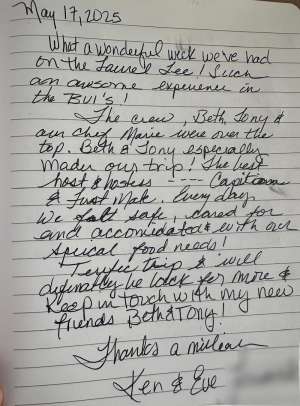 May 17, 2025
What a wonderful week we've had
on the Laurel Lee! Such
an awesome experience in
the BVI's!
The crew, Beth, Tony &
our chef Marie were over the
top. Beth & Tony especially
made our trip! The best
host & hostess ---- Captain
& First Mate. Every day
we felt safe, cared for
and accomidated with our
special food needs!
Terrific trip & will
definatly be back for more &
Keep in touch with my new
friends Beth & Tony!
Thanks a million
Ken & Eve